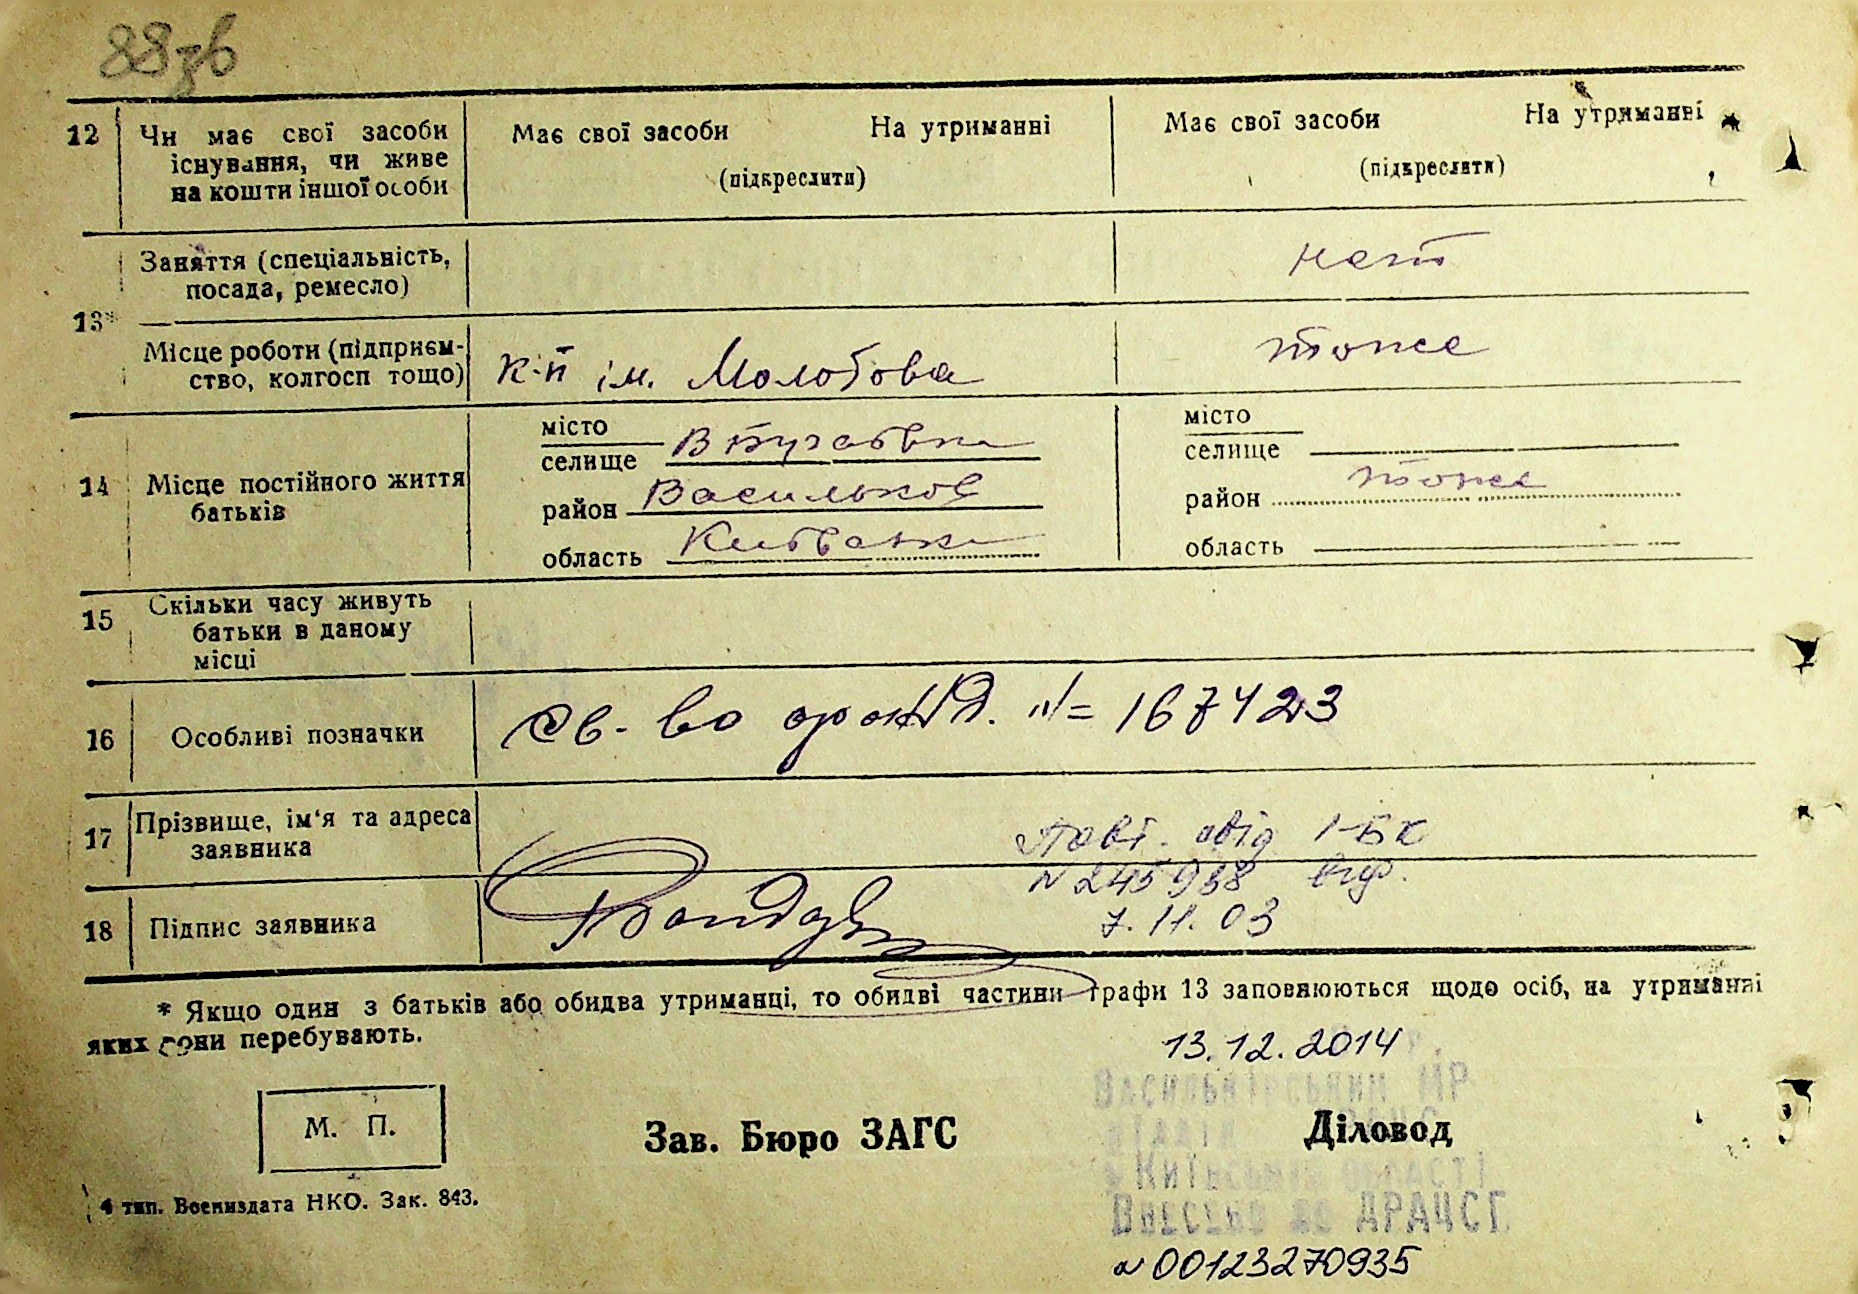 88зв
12 Чи має свої засоби існування, чи живе на кошти іншої особи
Має свої засоби На утриманні
(підкреслити)
Має свої засоби На утриманні
(підкреслити)
13* Заняття (спеціальність, посада, ремесло)
нет
Місце роботи (підприєм-
ство, колгосп тощо)
к-п ім. Молотова
тоже
14 Місце постійного життя батьків
місто
селище
район Васильков
область
місто
селище
район тоже
область
15 Скільки часу живуть
батьки в даному
місці
16 Особливі позначки
Св-во №= 167423
17 Прізвище, ім'я та адреса
заявника
Повт. свід 1-БК
N 245938
7.11.03
18 Підпис заявника
* Якщо один з батьків або обидва утриманці, то обидві частини графи 13 заповнюються щодо осіб, на утриманні
яких вони перебувають.
13.12.2014
Васильківським МР
відділ
Київській області
Внесено до ДРАЦСГ
М. П.
Зав. Бюро ЗАГС
Діловод
4 тип. Воениздата НКО. Зак. 843.
N 00123270935